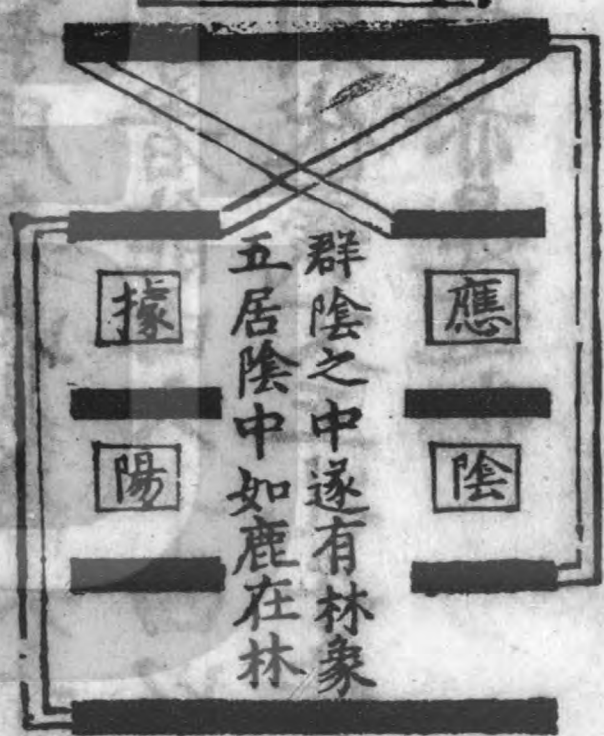 應
陰
群陰之中遂有林象
五居陰中如鹿在林
據
陽